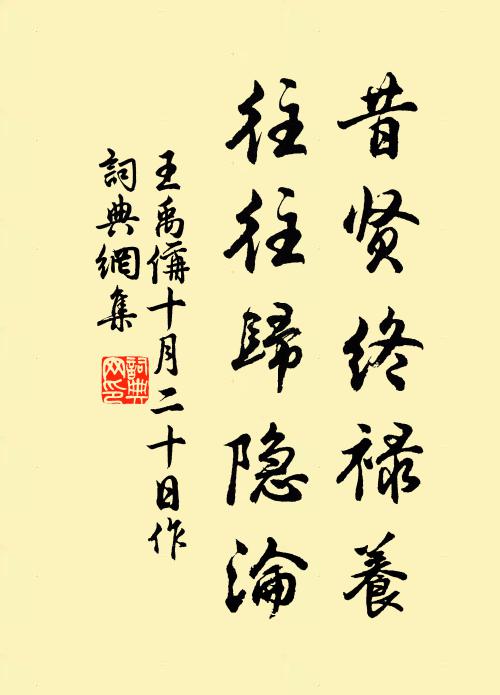 昔贤终禄養
往往歸隐淪
王禹偁十月二十日作
詞典網集
詞典网印